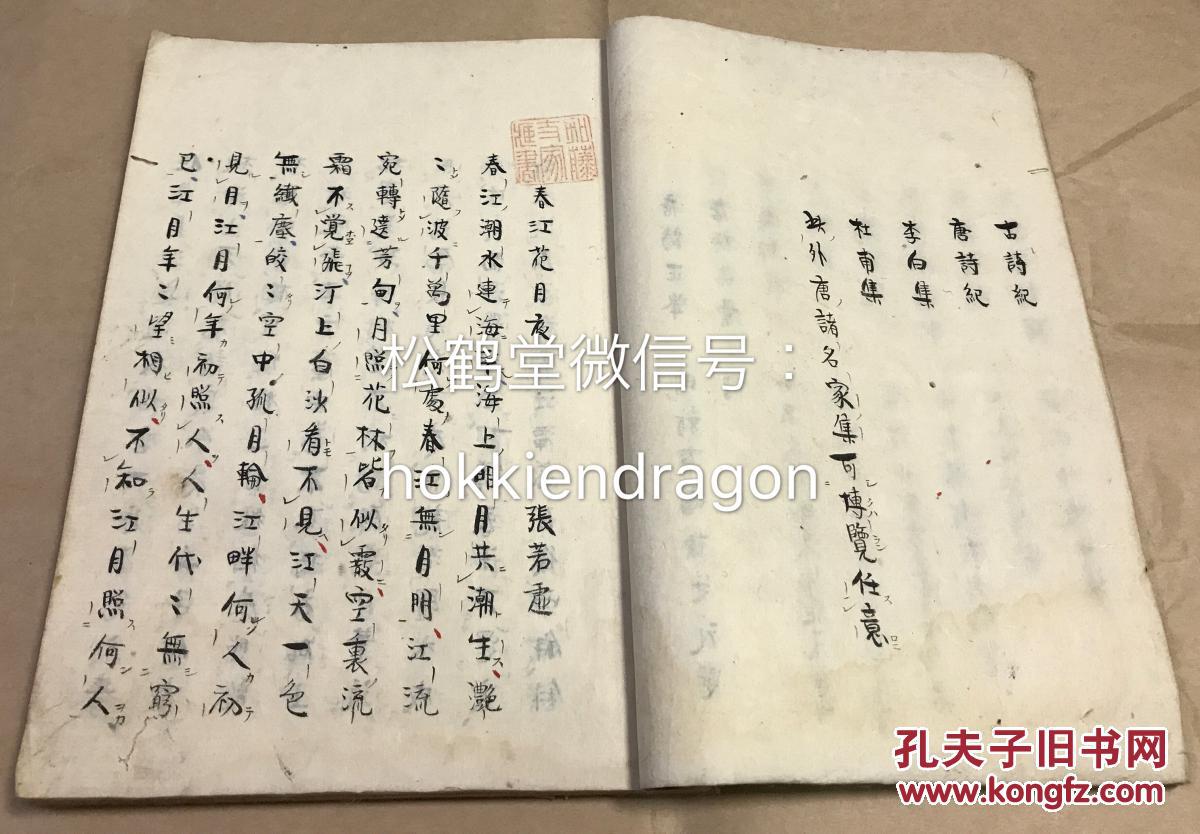 古詩紀
唐詩紀
李白集
杜甫集
此外唐諸名家集可博覽任意
加藤
家
春江花月夜 張若虛
春江潮水連海平海上明月共潮生灔
〻隨波千萬里何處春江無月明江流
宛轉遶芳甸月照花林皆似霰空裏流
霜不覚飛汀上白沙看不見江天一色
無纖塵皎〻空中孤月輪江畔何人初
見月江月何年初照人人生代〻無窮
已江月年〻望相似不知江月照何人
松鹤堂微信号：
hokkiendragon
孔夫子旧书网
www.kongfz.com